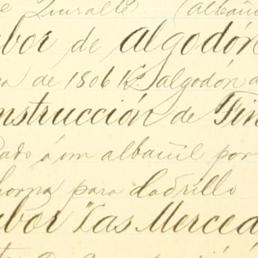 e Ituralde (albañ
abor de algodón
a de 1506 Ks algodón a
nstrucción de Fin
ado á un albañil por
horna para ladrillo
abor "Las Merced